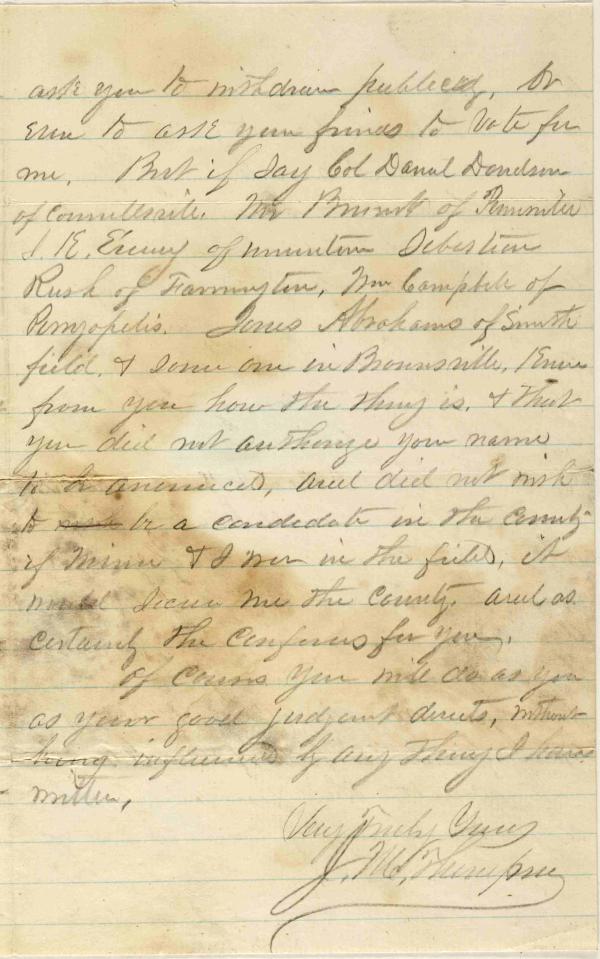 ask you to withdraw publicly, Or
Even to ask your friends to Vote for
me. But if say Col Daniel Davidson
of Connellsville. Mr of
J. K. Ewing of Uniontown Sebastian
Rush of Farmington, Wm Campbell of
Perryopolis. James Abrahams of Smith
field. & some one in Brownsville, Knew
from you how the thing is. & that
you did not authorize your name
to be anounced, and did not wish
to be a candidate in the County
if mine & I was in the field, it
would secure me the County. and as
certainly the Conferees for you.
Of Course you will do as you
as your good judgment directs, without
being influenced by any thing I have
written,
Very Truly Yours
J. M. Thompson